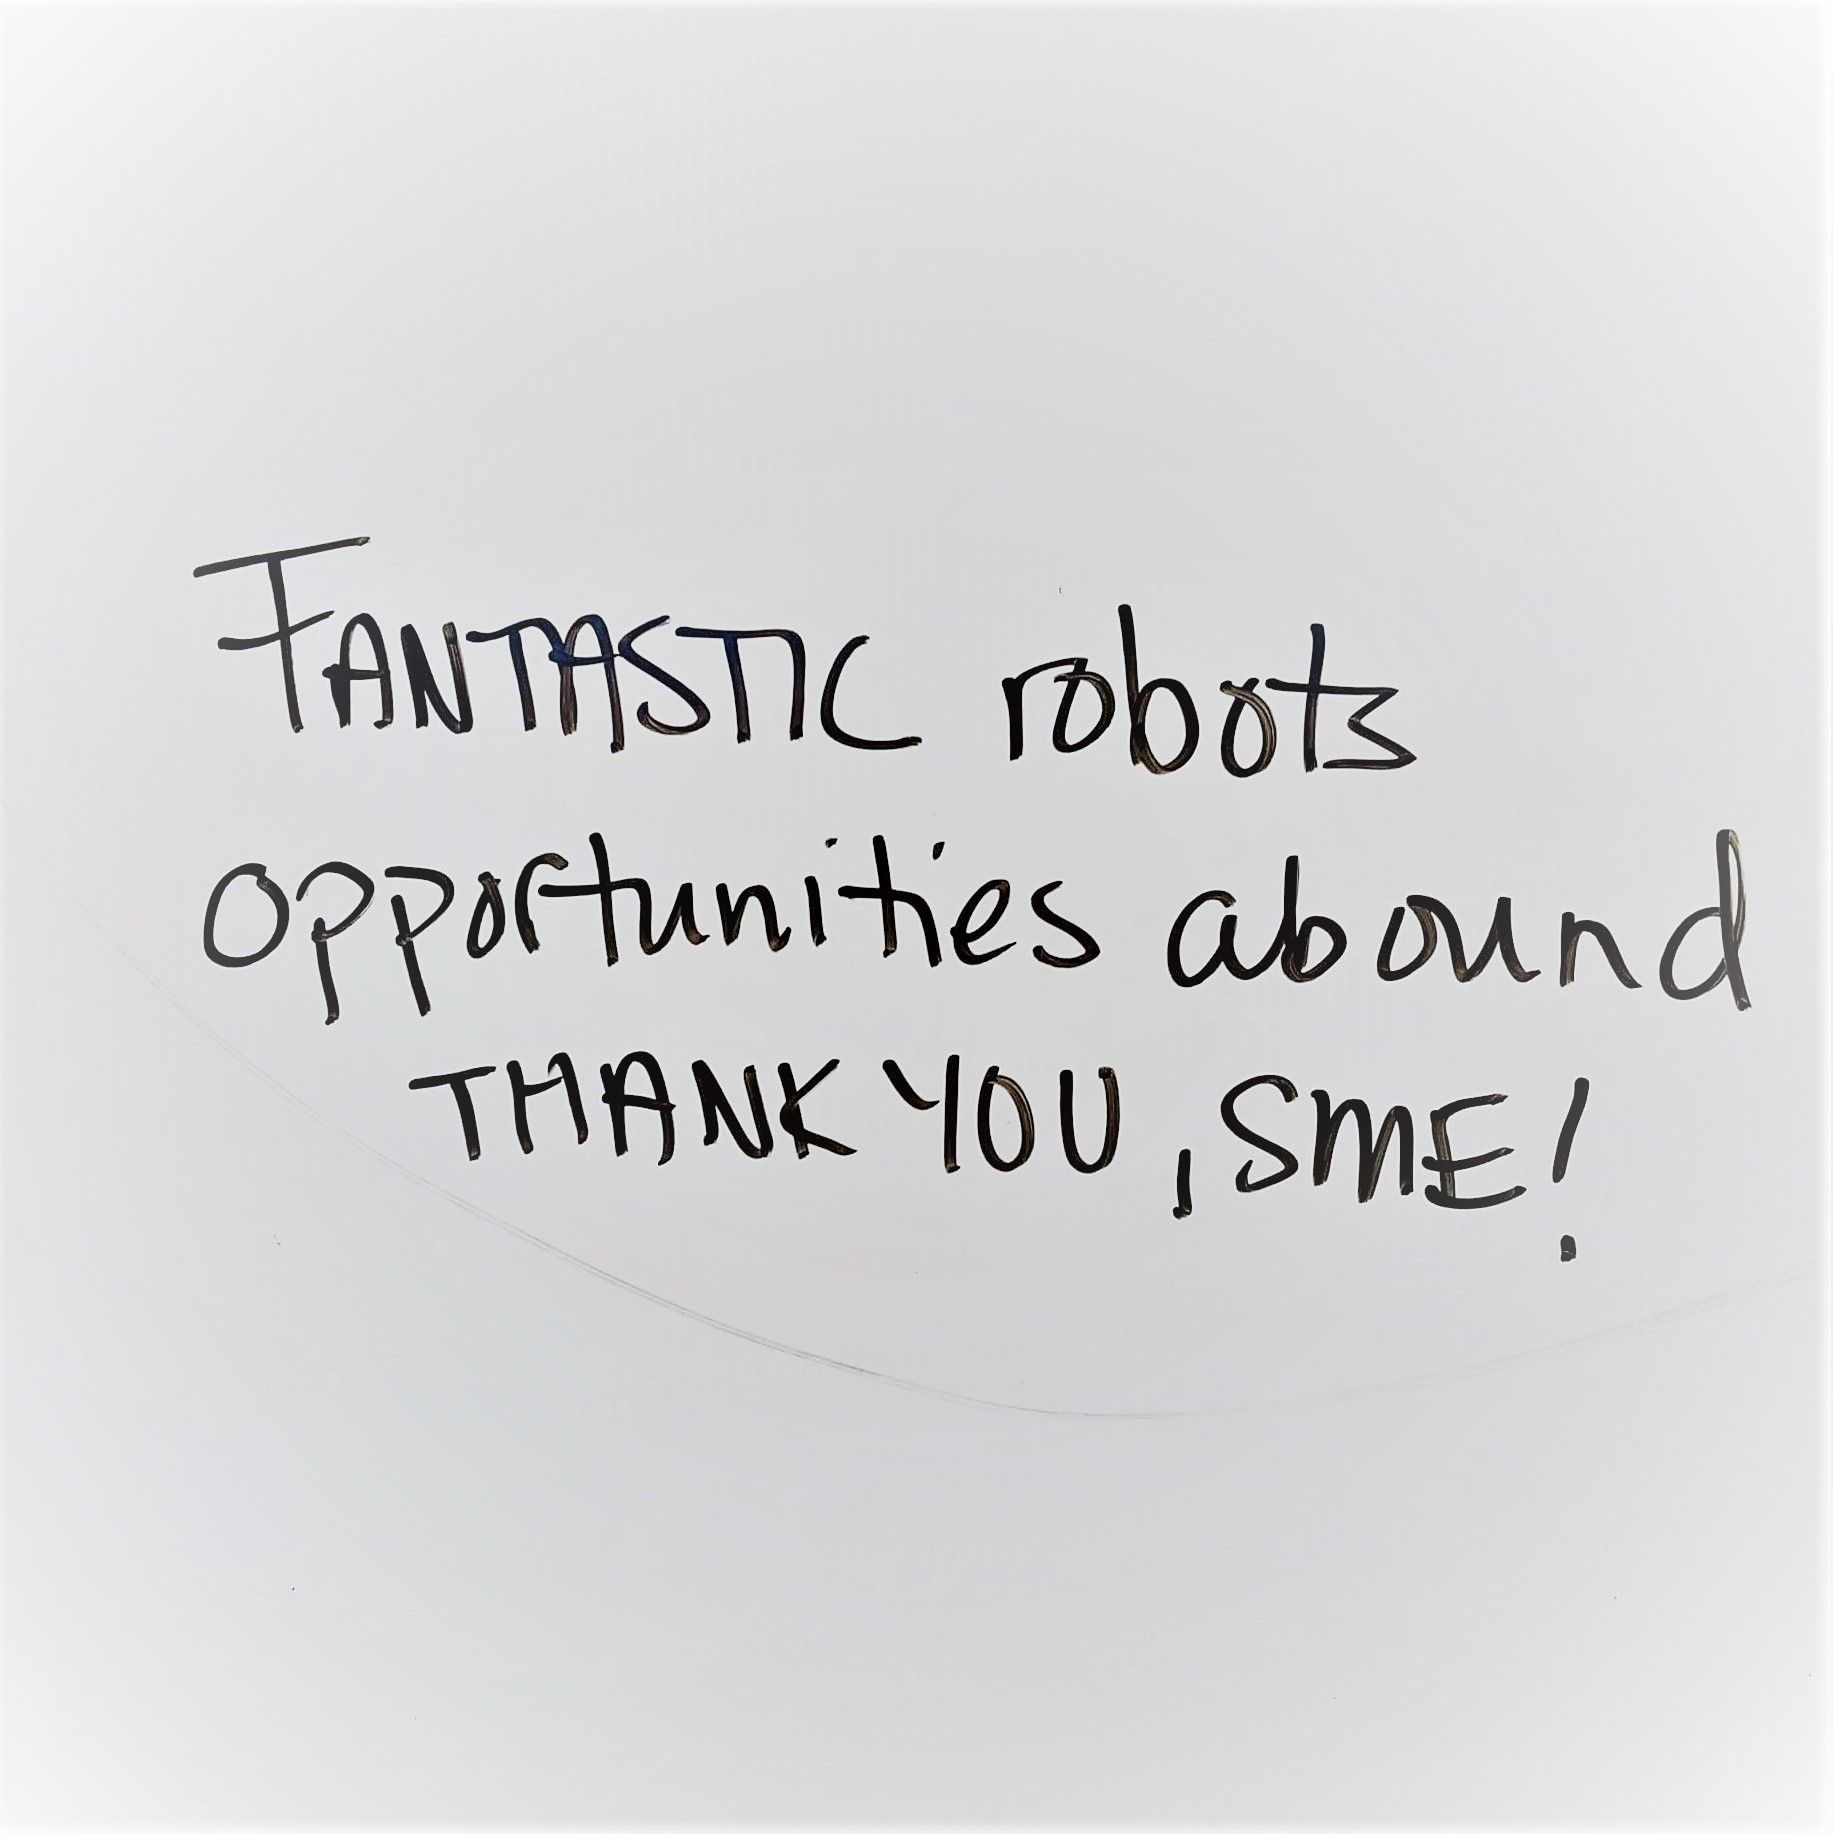 FANTASTIC robots
opportunities abound
THANK YOU, SME!